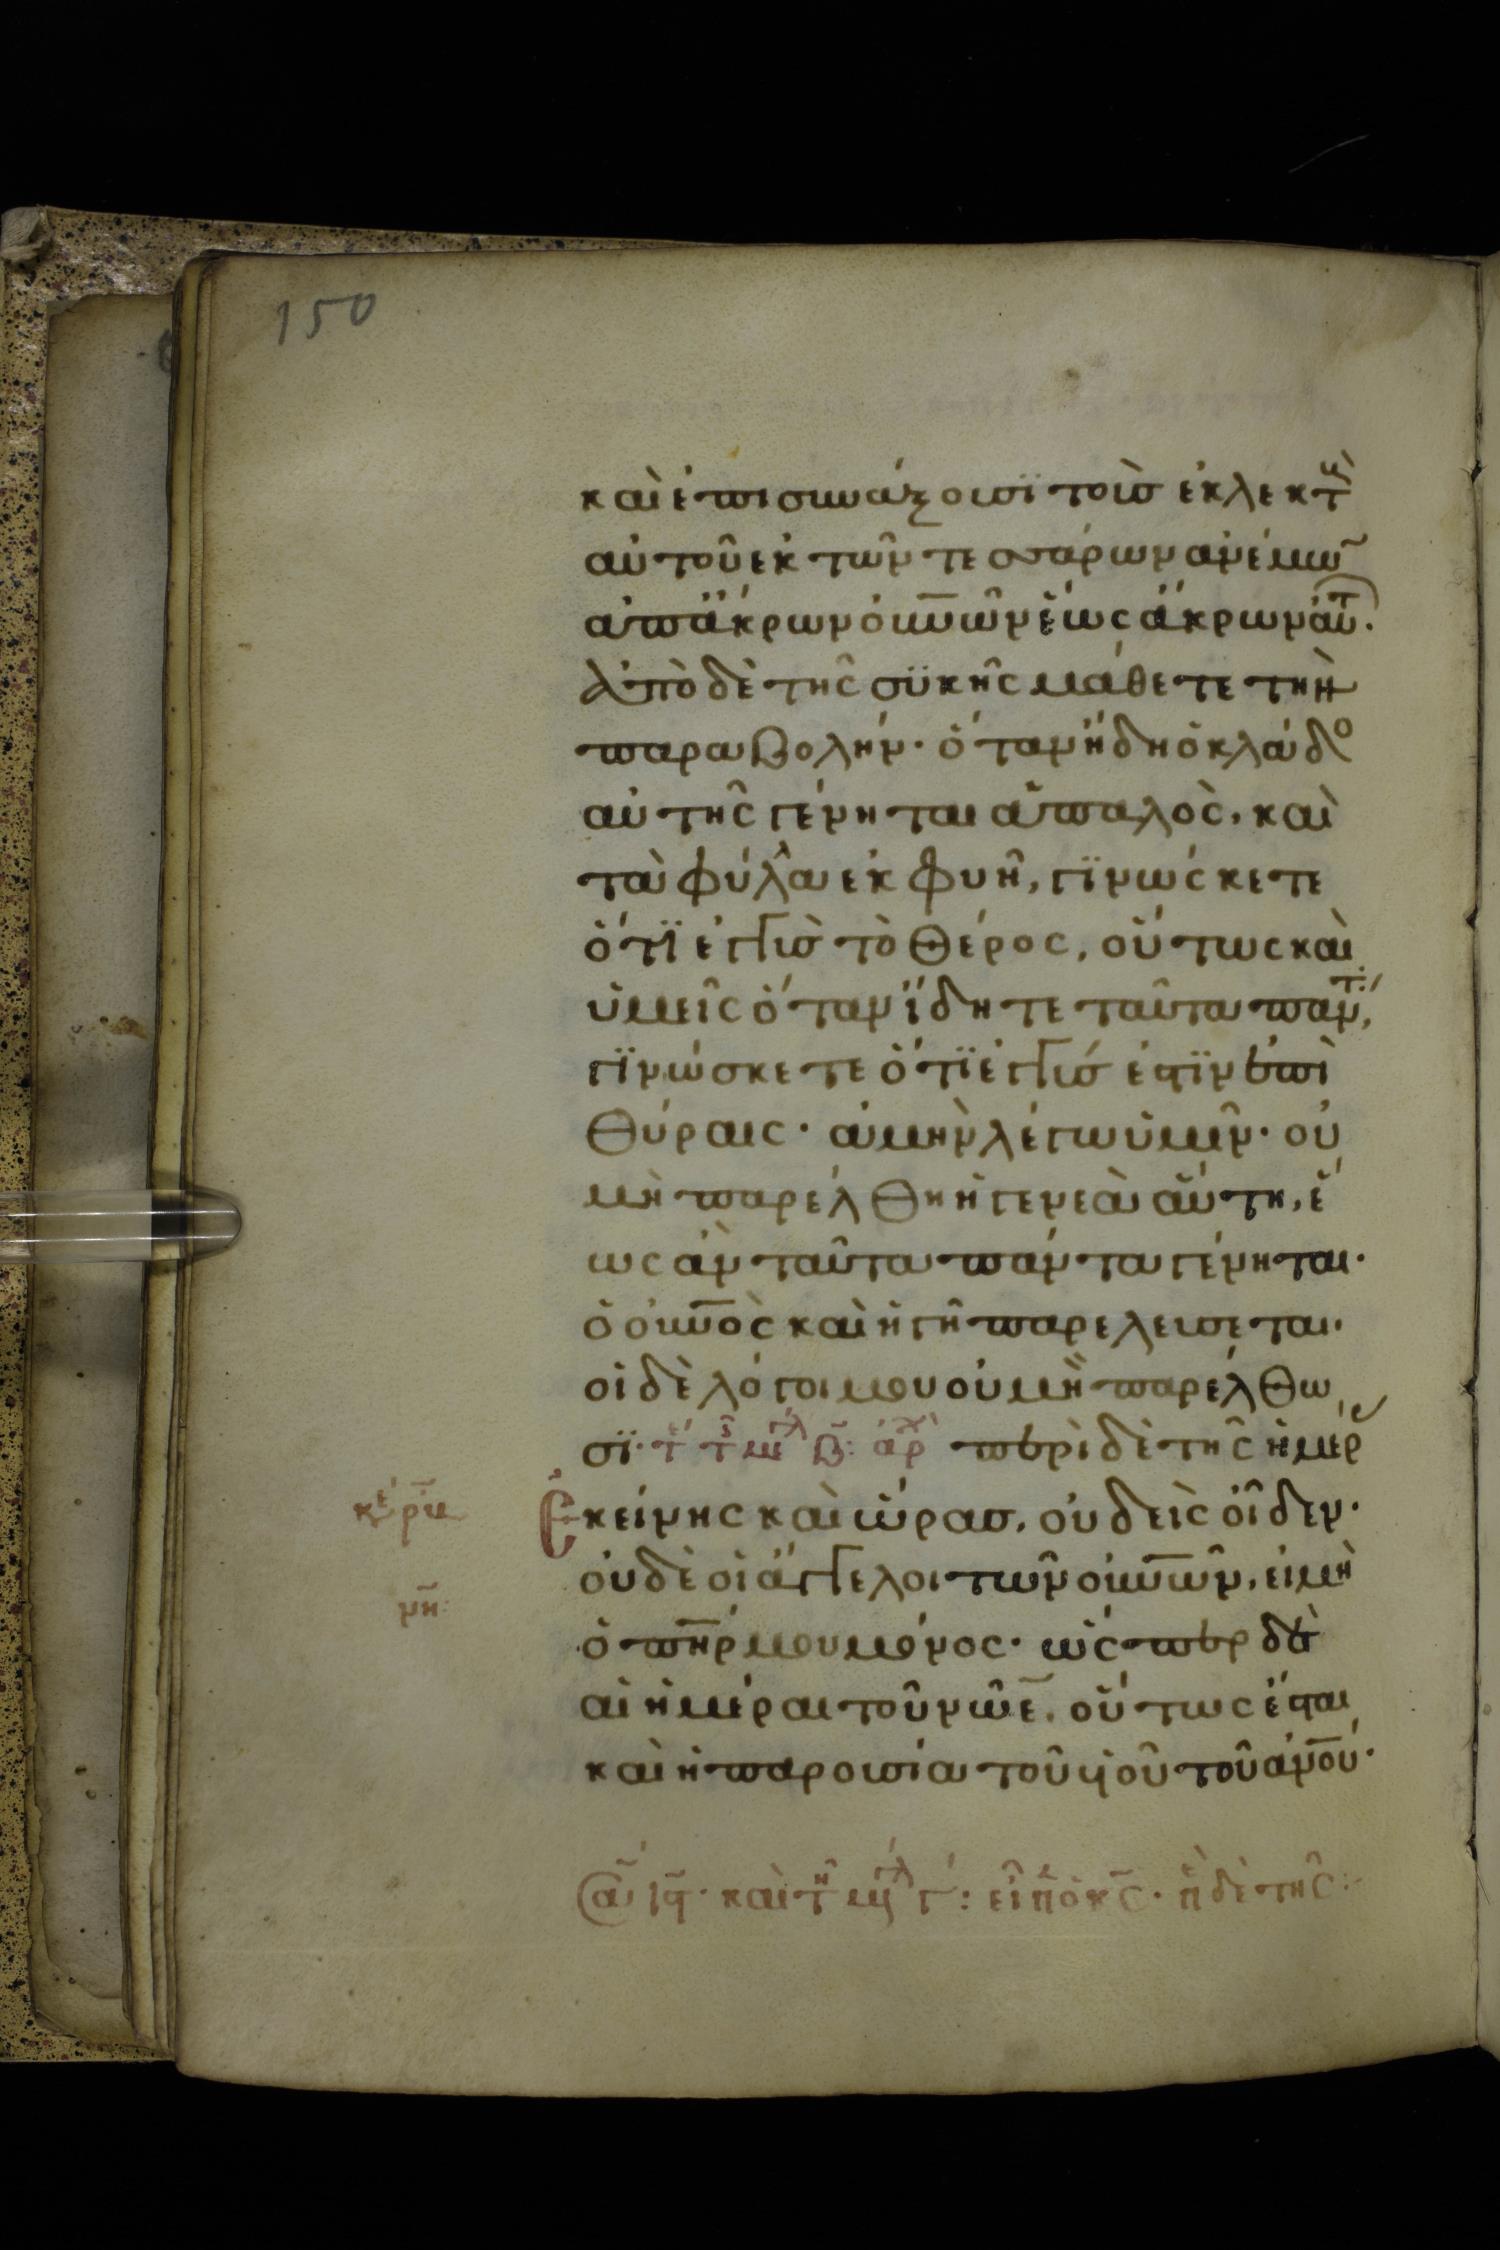 150
και ἐπισυνάξουσϊ τοὺσ ἐκλεκτ
αὐτοῦ ἐκ τῶν τεσσάρων ἀνέμω
ἀπἄκρων οὐνῶν ἕως ἄκρων ἀυτ.
Ἀπὸ δὲ τῆς συκῆς μάθετε τὴν
παραβολήν· ὅταν ἤδη ὁ κλάδο
αὐτῆς γένηται ἁπαλὸς, καὶ
τὰ φύλλα ἐκφυῆ, γϊνώσκετε
ὅτϊ ἐγγὺσ τὸ θέρος, οὕτως και
ὑμεῖς ὅταν ἴδητε ταῦτα παντ,
γϊνώσκετε ὅτϊ ἐγγύσ ἐστϊν ἐπὶ
θύραις· ἀμὴν λέγω ὑμῖν· οὐ
μὴ παρέλθη ἡ γενεὰ αὕτη, ἕ
ως ἀν ταῦτα πάντα γένηται·
ὁ οὐνὸς καὶ ἡ γῆ παρελευσεται·
οἱ δὲ λόγοι μου οὐ μὴ παρέλθω
σϊ· περὶ δὲ τῆς ἡμερ
κε ρμ Ἐκείνης καὶ ὥρασ, οὐδεὶς οἶδεν·
οὐδὲ οἱ ἄγγελοι τῶν οὐνῶν, εἰ μὴ
νη ὁ πηρ μου μόνος· ὡς περ δὲ
αἱ ἡμέραι τοῦ νῶε, οὕτως ἔσται
καὶ ἡ παρουσία τοῦ υἱοῦ τοῦ ἀνου·
καὶ γ: εἶπ ὁ κς· π δὲ τῆς: